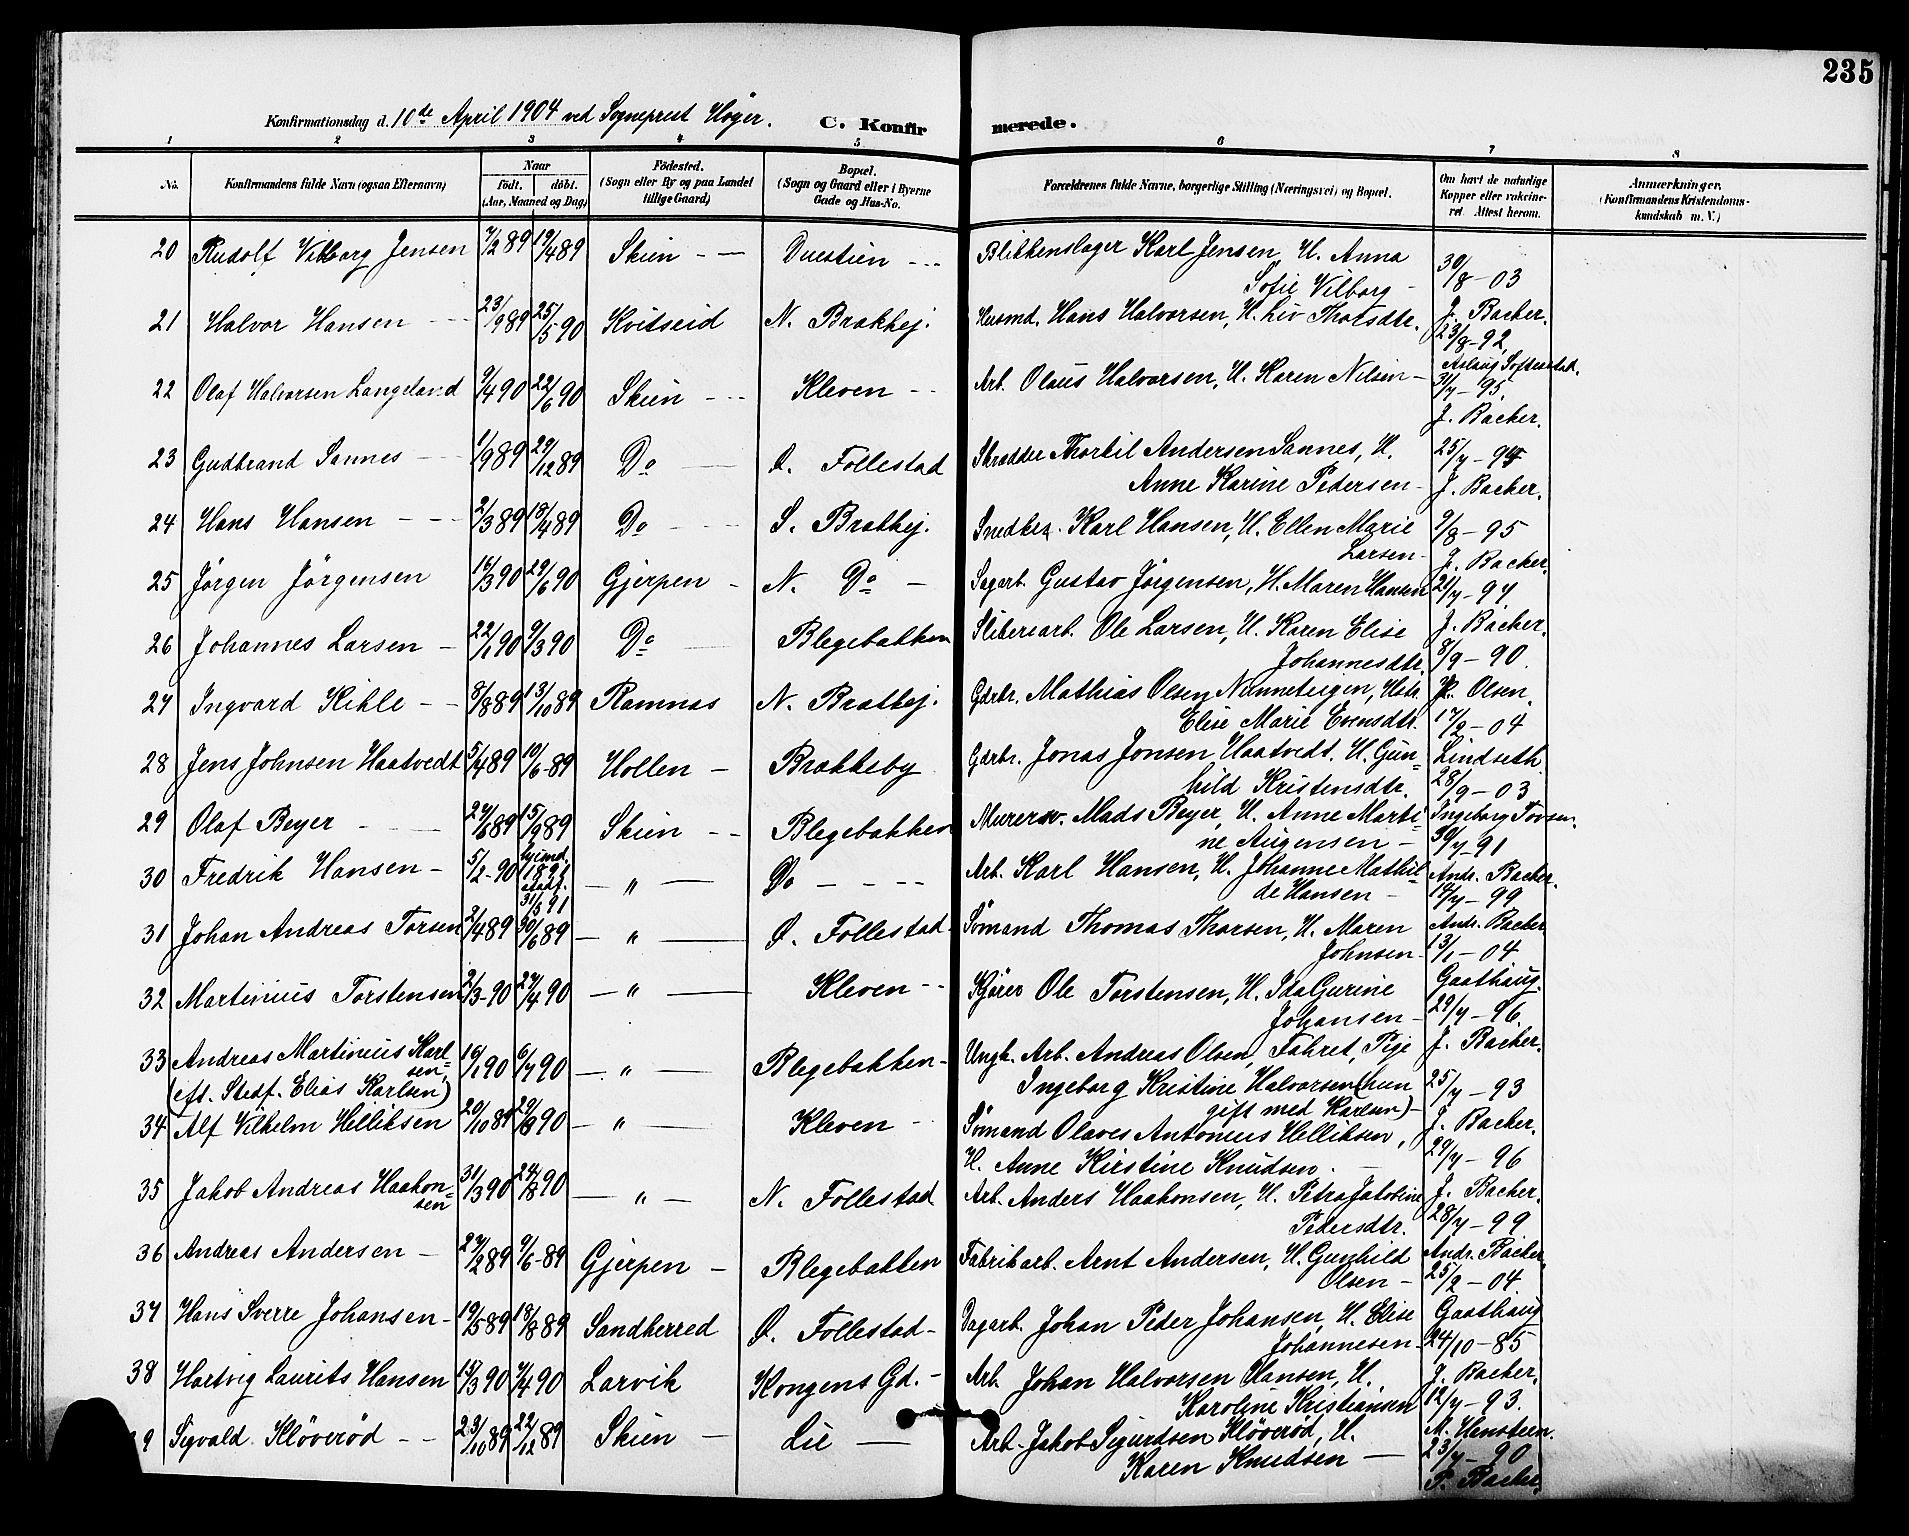 235
Konfirmationsdag d. 10de April 1904 ved Sogneprest Höyer. C. Konfirmerede.
1 2 3 4 5 6 7 8
No. Konfirmandens fulde Navn (ogsaa Efternavn) Naar födt. döbt. (Aar, Maaned og Dag) Födested. (Sogn eller By og paa Landet tillige Gaard) Bopæl. (Sogn og Gaard eller i Byerne Gade og Hus-No. Forældrenes fulde Navne, borgerlige Stilling (Næringsvei) og Bopæl. Om havt de naturlige Kopper eller vakcineret. Attest herom. Anmærkninger. (Konfirmandens Kristendomskundskab m. V.)
20 Rudolf Vilborg Jensen 7/2 89 19/4 89 Skien Duestien Blikkenslager Karl Jensen, H. Anna
Sofie Vilborg - 30/8-03
21 Halvor Hansen 23/9 89 25/5 90 Kvitseid N. Brakkej. Husmd. Hans Halvorsen, H. Liv Thorsdtr. J. Backer.
23/8-92
22 Olaf Halvorsen Langeland 9/4 90 22/6 90 Skien Kleven Arb. Olaus Halvorsen, H. Karen Nilsen - Aslaug
31/7-95.
J. Backer.
23 Gudbrand Sannes 1/9 89 29/12 89 Do Ø. Follestad Skrædder Thorkil Andersen Sannes, H. 25/7-95
Anne Karine Pedersen - J. Backer.
24 Hans Hansen 2/3 89 19/4 89 Do S. Brakkej. Snedker Karl Hansen, H. Ellen Marie 9/8-95
Larsen - J. Backer.
25 Jörgen Jörgensen 16/3 90 29/6 90 Gjerpen N. Do Sagarb. Gustav Jörgensen, H. Maren Hansen 21/7-94
J. Backer.
26 Johannes Larsen 22/1 90 9/3 90 Do Blegebakken Sliberiarb. Ole Larsen, H. Karen Elise
Johannesdtr. 8/9-90.
27 Ingvard Kihle 8/8 89 13/10 89 Ramnæs N. Brakkej. Gdrbr. Mathias Olsen Nunneteigen, Hstr. Olsen.
Elise Marie Evensdtr. 17/2-04
28 Jens Johnsen Haatvedt 5/4 89 10/6-89 Hollen Brakkeby Gdrbr. Jonas Jonsen Haatvedt. H. Gun= Lindseth
hild Kristensdtr. 28/9-03
29 Olaf Beyer 27/6 89 15/9 89 Skien Blegebakken Murersv. Mads Beyer, H. Anne Marti= Ingeborg Torsen.
ne Augensen - 30/7-91
30 Fredrik Hansen 5/2-90 hjemd. 1891 stadf. 31/5 91 " Do Arb. Karl Hansen, H. Johanne Mathil= Andr. Backer.
de Hansen - 14/7-99
31 Johan Andreas Torsen 2/4 89 30/6 89 " Ø. Follestad Sömand Thomas Thorsen, H. Maren Andr. Backer
Johnsen - 13/1-04
32 Martinius Torstensen 2/3-90 27/4 90 " Kleven Kjörer Ole Torstensen, H. Ida Gurine Gaathaug.
Johansen - 29/7-96.
33 Andreas Martinius Karl= 16/1 90 6/7 90 " Blegebakken Ungk. Arb. Andreas Olsen, Fahret, Pige J. Backer.
sen, (eft. Stedf. Elias Karlsen) Ingeborg Kristine Halvorsen (hun 25/7-93
gift med Karlsen) -
34 Alf Vilhelm Helliksen 20/10 89 29/3 90 " Kleven Sömand Olaves Antonius Helliksen, J. Backer.
H. Anne Kirstine Knudsen. 29/7-96
35 Jakob Andreas Haakon= 31/3 90 24/8 90 " N. Follestad Arb. Anders Haakonsen, H. Petra Jakobine J. Backer.
sen Pedersdtr. 28/7-99
36 Andreas Andersen 27/2 89 9/6-89 Gjerpen Blegebakken Fabrikarb. Arnt Andersen, H. Gunhild Andr. Backer.
Olsen - 25/2-04.
37 Hans Sverre Johansen 19/5 89 18/8 89 Sandherred Ø. Follestad Dagarb. Johan Peder Johansen, H. Elise Gaathaug
Johannesen - 24/10-85
38 Hartvig Laurits Hansen 17/3 90 7/4 90 Larvik Kongens Gd. Arb. Johan Halvorsen Hansen, H. J. Backer.
Karoline Kristiansen 12/7-93.
39 Sigvald Kløverød 23/10 89 22/12 89 Skien Lie Arb. Jakob Sigurdsen Kløverød, H. M. Hensteen.
Karen Knudsen 23/7-90
P. Backer.